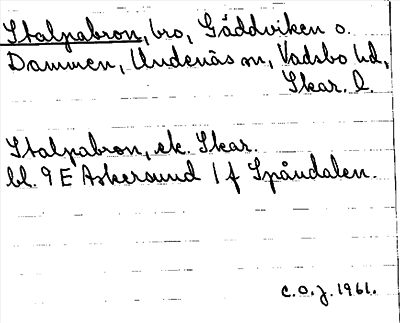 Stalpabron, bro, Gäddviken o.
Dammen, Undenäs sn, Vadsbo hd,
Skar. l.
Stalpabron, ek. Skar.
bl. 9 E Askersund 1 f Spåndalen.
C.O.J. 1961.